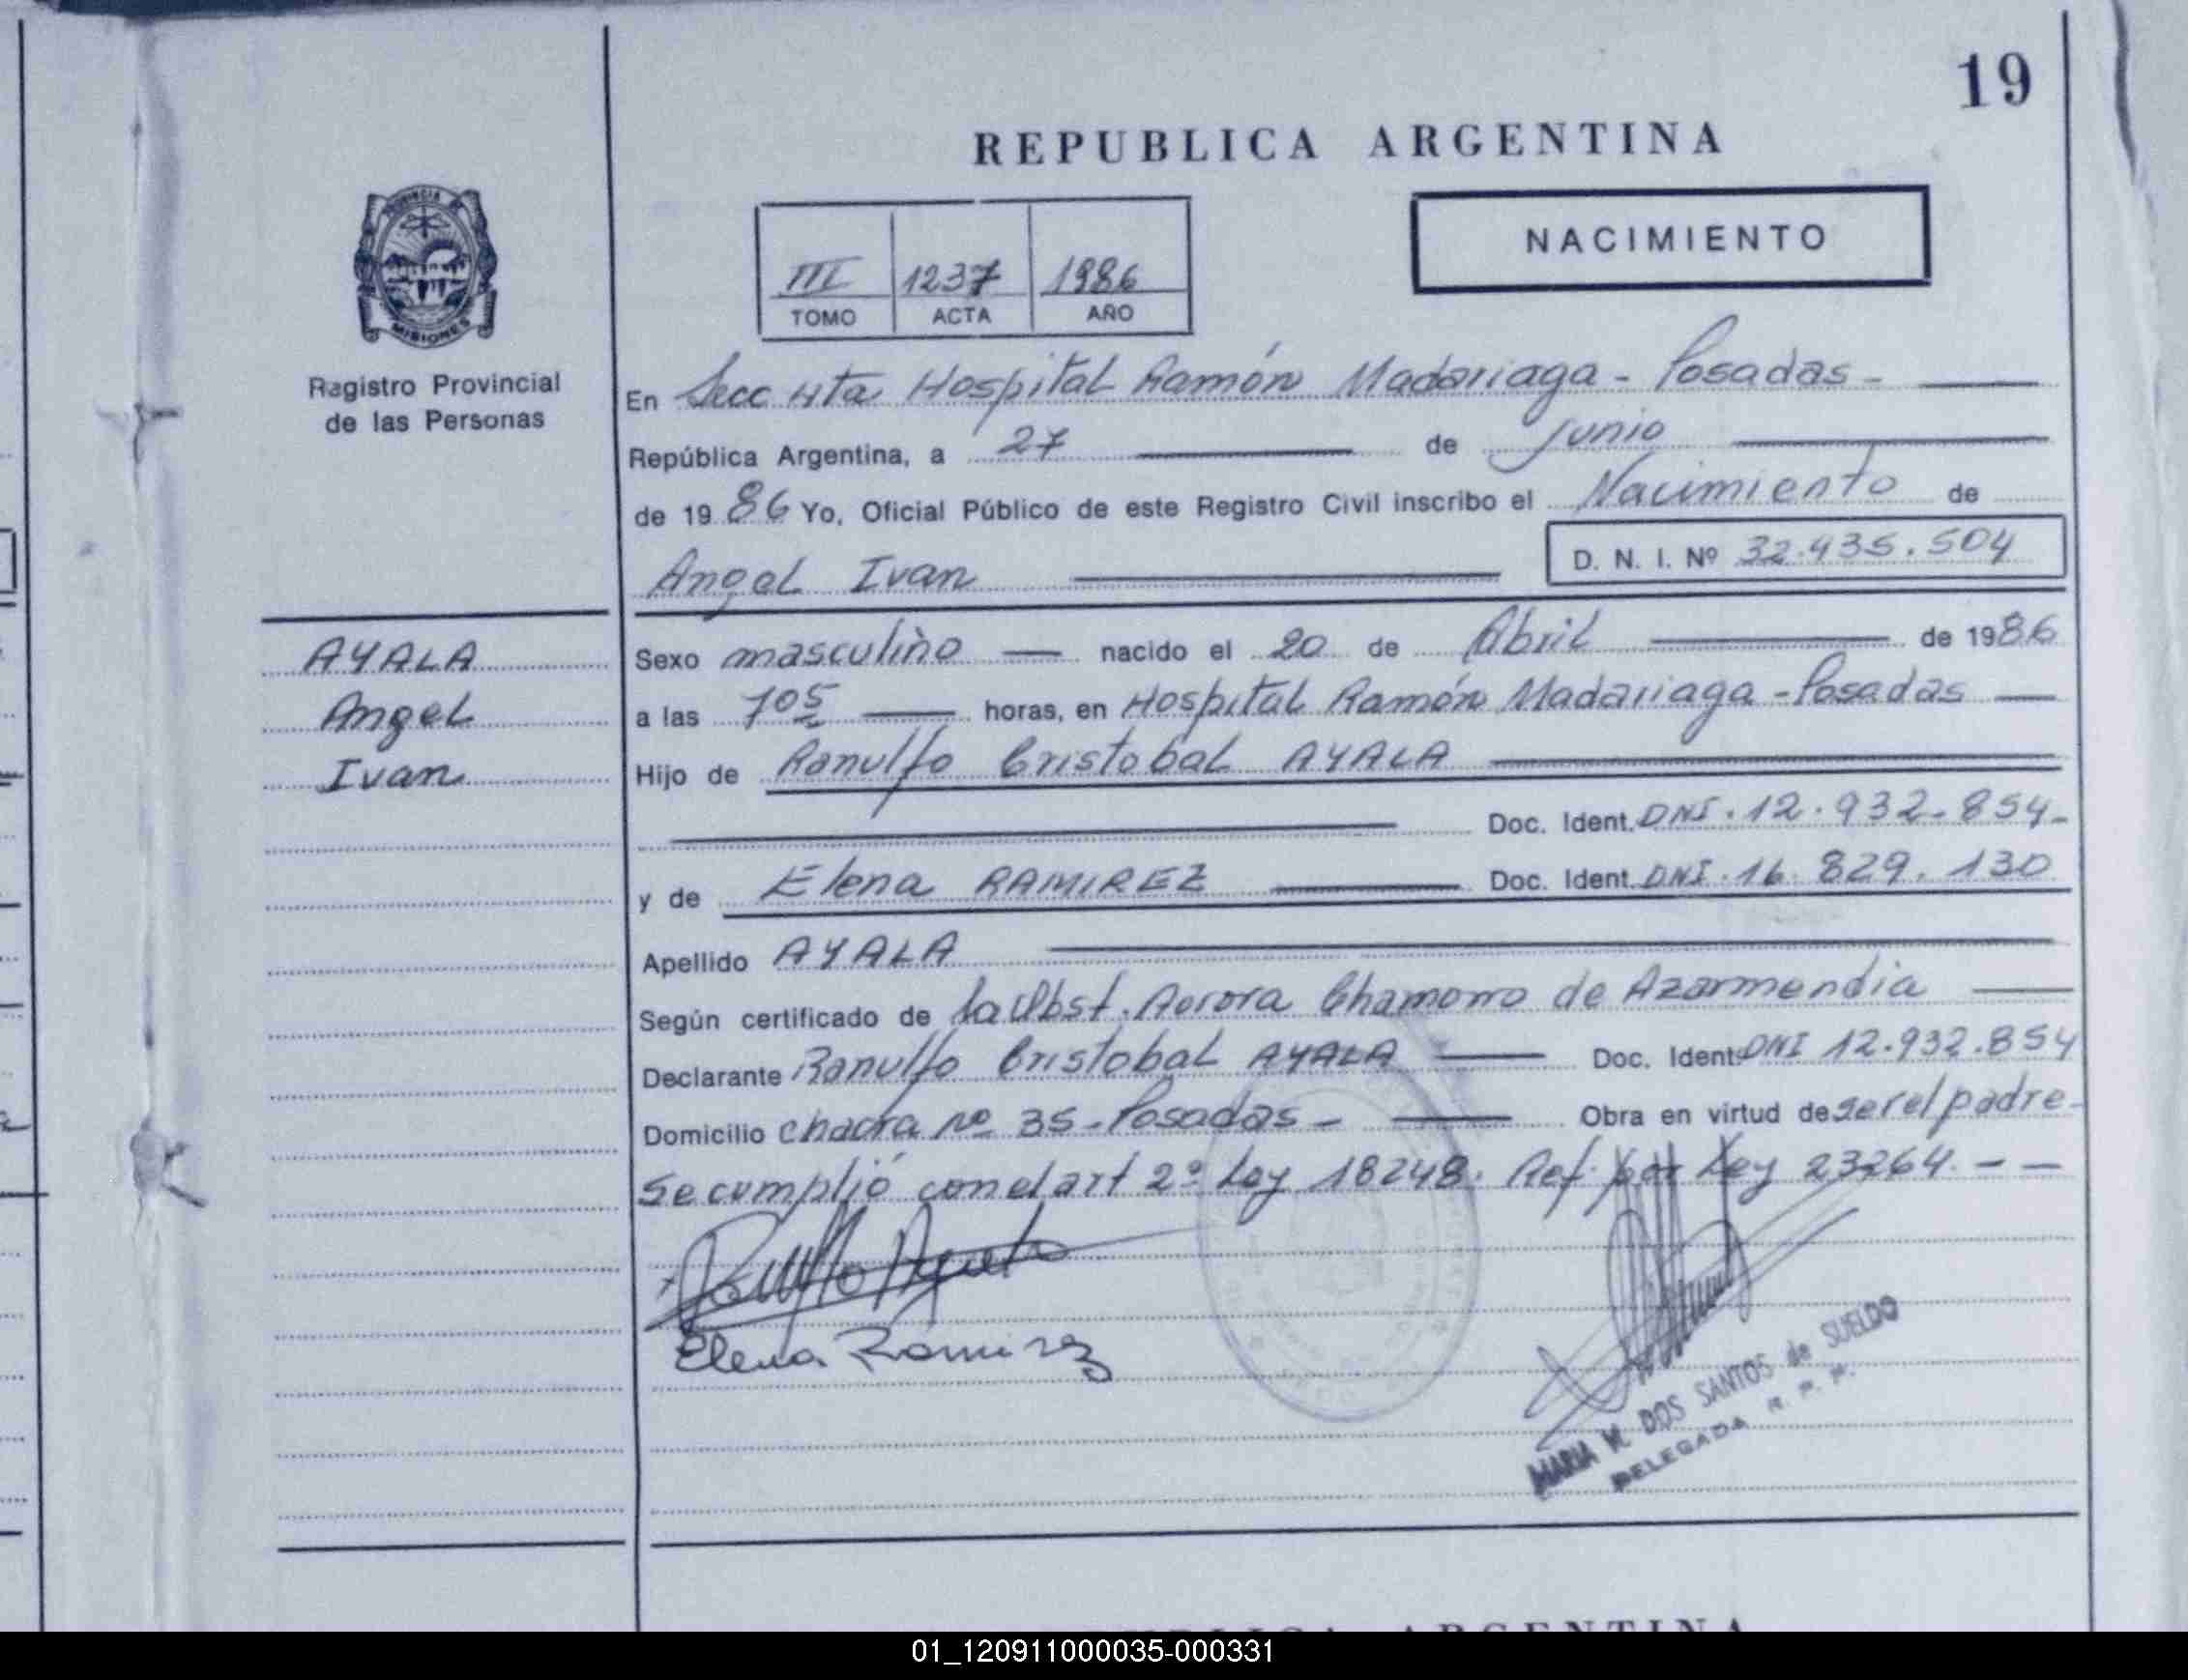 19
REPUBLICA ARGENTINA
PROVINCIA DE
MISIONES
Registro Provincial
de las Personas
III 1237 1986
TOMO ACTA AÑO
NACIMIENTO
En Secc 4ta Hospital Ramón Madariaga - Posadas -
República Argentina, a 27 de Junio
de 1986 Yo, Oficial Público de este Registro Civil inscribo el Nacimiento de
Angel Ivan D. N. I. Nº 32.435.504
AYALA
Angel
Ivan
Sexo masculino nacido el 20 de Abril de 1986
a las 705 horas, en Hospital Ramón Madariaga - Posadas
Hijo de Ranulfo Cristobal AYALA
Doc. Ident. DNI. 12.932.854-
y de Elena RAMIREZ Doc. Ident. DNI. 16.829.130
Apellido AYALA
Según certificado de la Obst. Aurora Chamorro de Azarmendia
Declarante Ranulfo Cristobal AYALA Doc. Ident. DNI 12.932.854
Domicilio chacra nº 35 - Posadas - Obra en virtud de ser el padre-
Se cumplió con el art 2º Ley 18248. Ref. por Ley 23264. - -
Elena Ramirez
MARIA W. DOS SANTOS de SUELDO
DELEGADA R. P. P.
REPUBLICA ARGENTINA
01_120911000035-000331